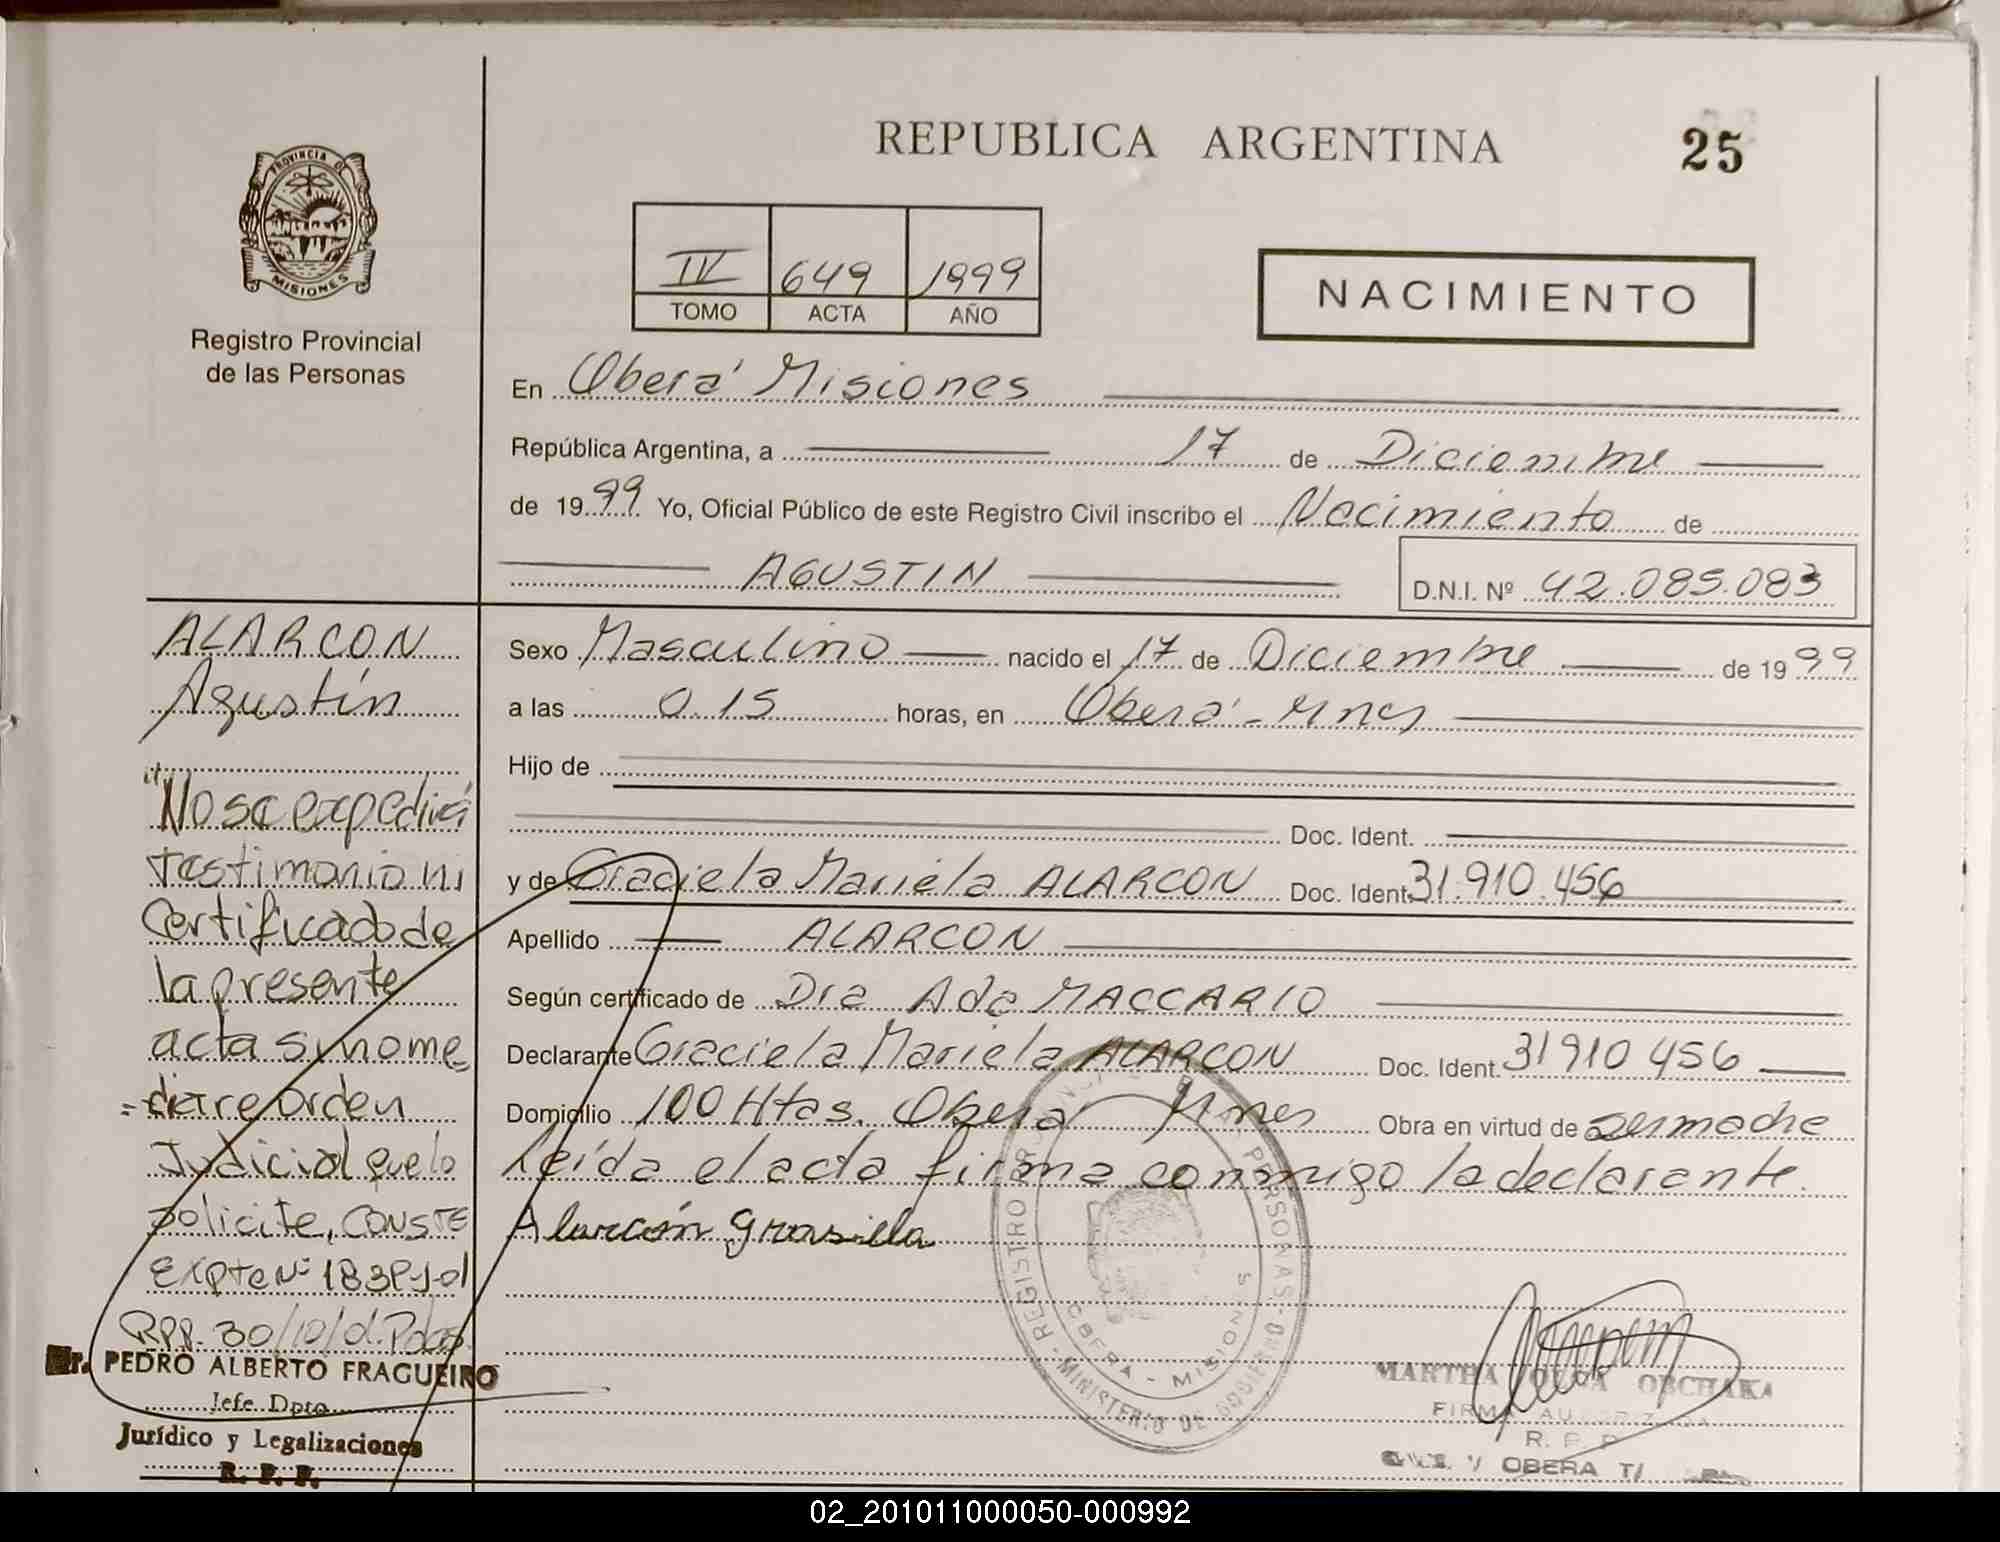 REPUBLICA ARGENTINA
25
PROVINCIA DE
MISIONES
Registro Provincial
de las Personas
IV 649 1999
TOMO ACTA AÑO
NACIMIENTO
En Oberá Misiones
República Argentina, a 17 de Diciembre
de 1999 Yo, Oficial Público de este Registro Civil inscribo el Nacimiento de
AGUSTIN
D.N.I. Nº 42.085.083
ALARCON
Agustín
"No se expedirá
testimonio ni
certificado de
la presente
acta si no me
=diare orden
Judicial que lo
solicite, CONSTE
Expte Nº
RPP. 30/10/01. Pdas.
Dr. PEDRO ALBERTO FRAGUEIRO
Jefe Dpto.
Jurídico y Legalizaciones
R. P. P.
Sexo Masculino nacido el 17 de Diciembre de 1999
a las 0.15 horas, en Oberá - Mnes
Hijo de
Doc. Ident.
y de Graciela Mariela ALARCON Doc. Ident. 31.910.456
Apellido ALARCON
Según certificado de Dra Ada MACCARIO
Declarante Graciela Mariela ALARCON Doc. Ident. 31910456
Domicilio 100 Htas. Oberá Mnes Obra en virtud de ser madre
Leída el acta firma conmigo la declarante.
Alarcón Grasiela
REGISTRO PROVINCIAL DE LAS PERSONAS - MINISTERIO DE GOBIERNO
OBERA - MISIONES
MARTHA OLGA OBCHAKA
FIRMA AUTORIZADA
R. P. P.
OBERA
02_201011000050-000992